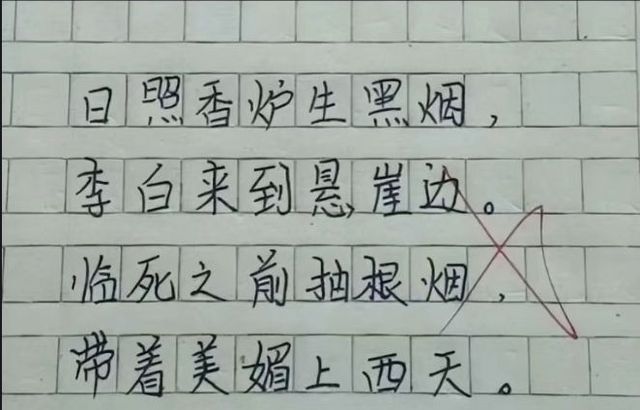 日照香炉生黑烟，
李白来到悬崖边。
临死之前抽根烟，
带着美媚上西天。